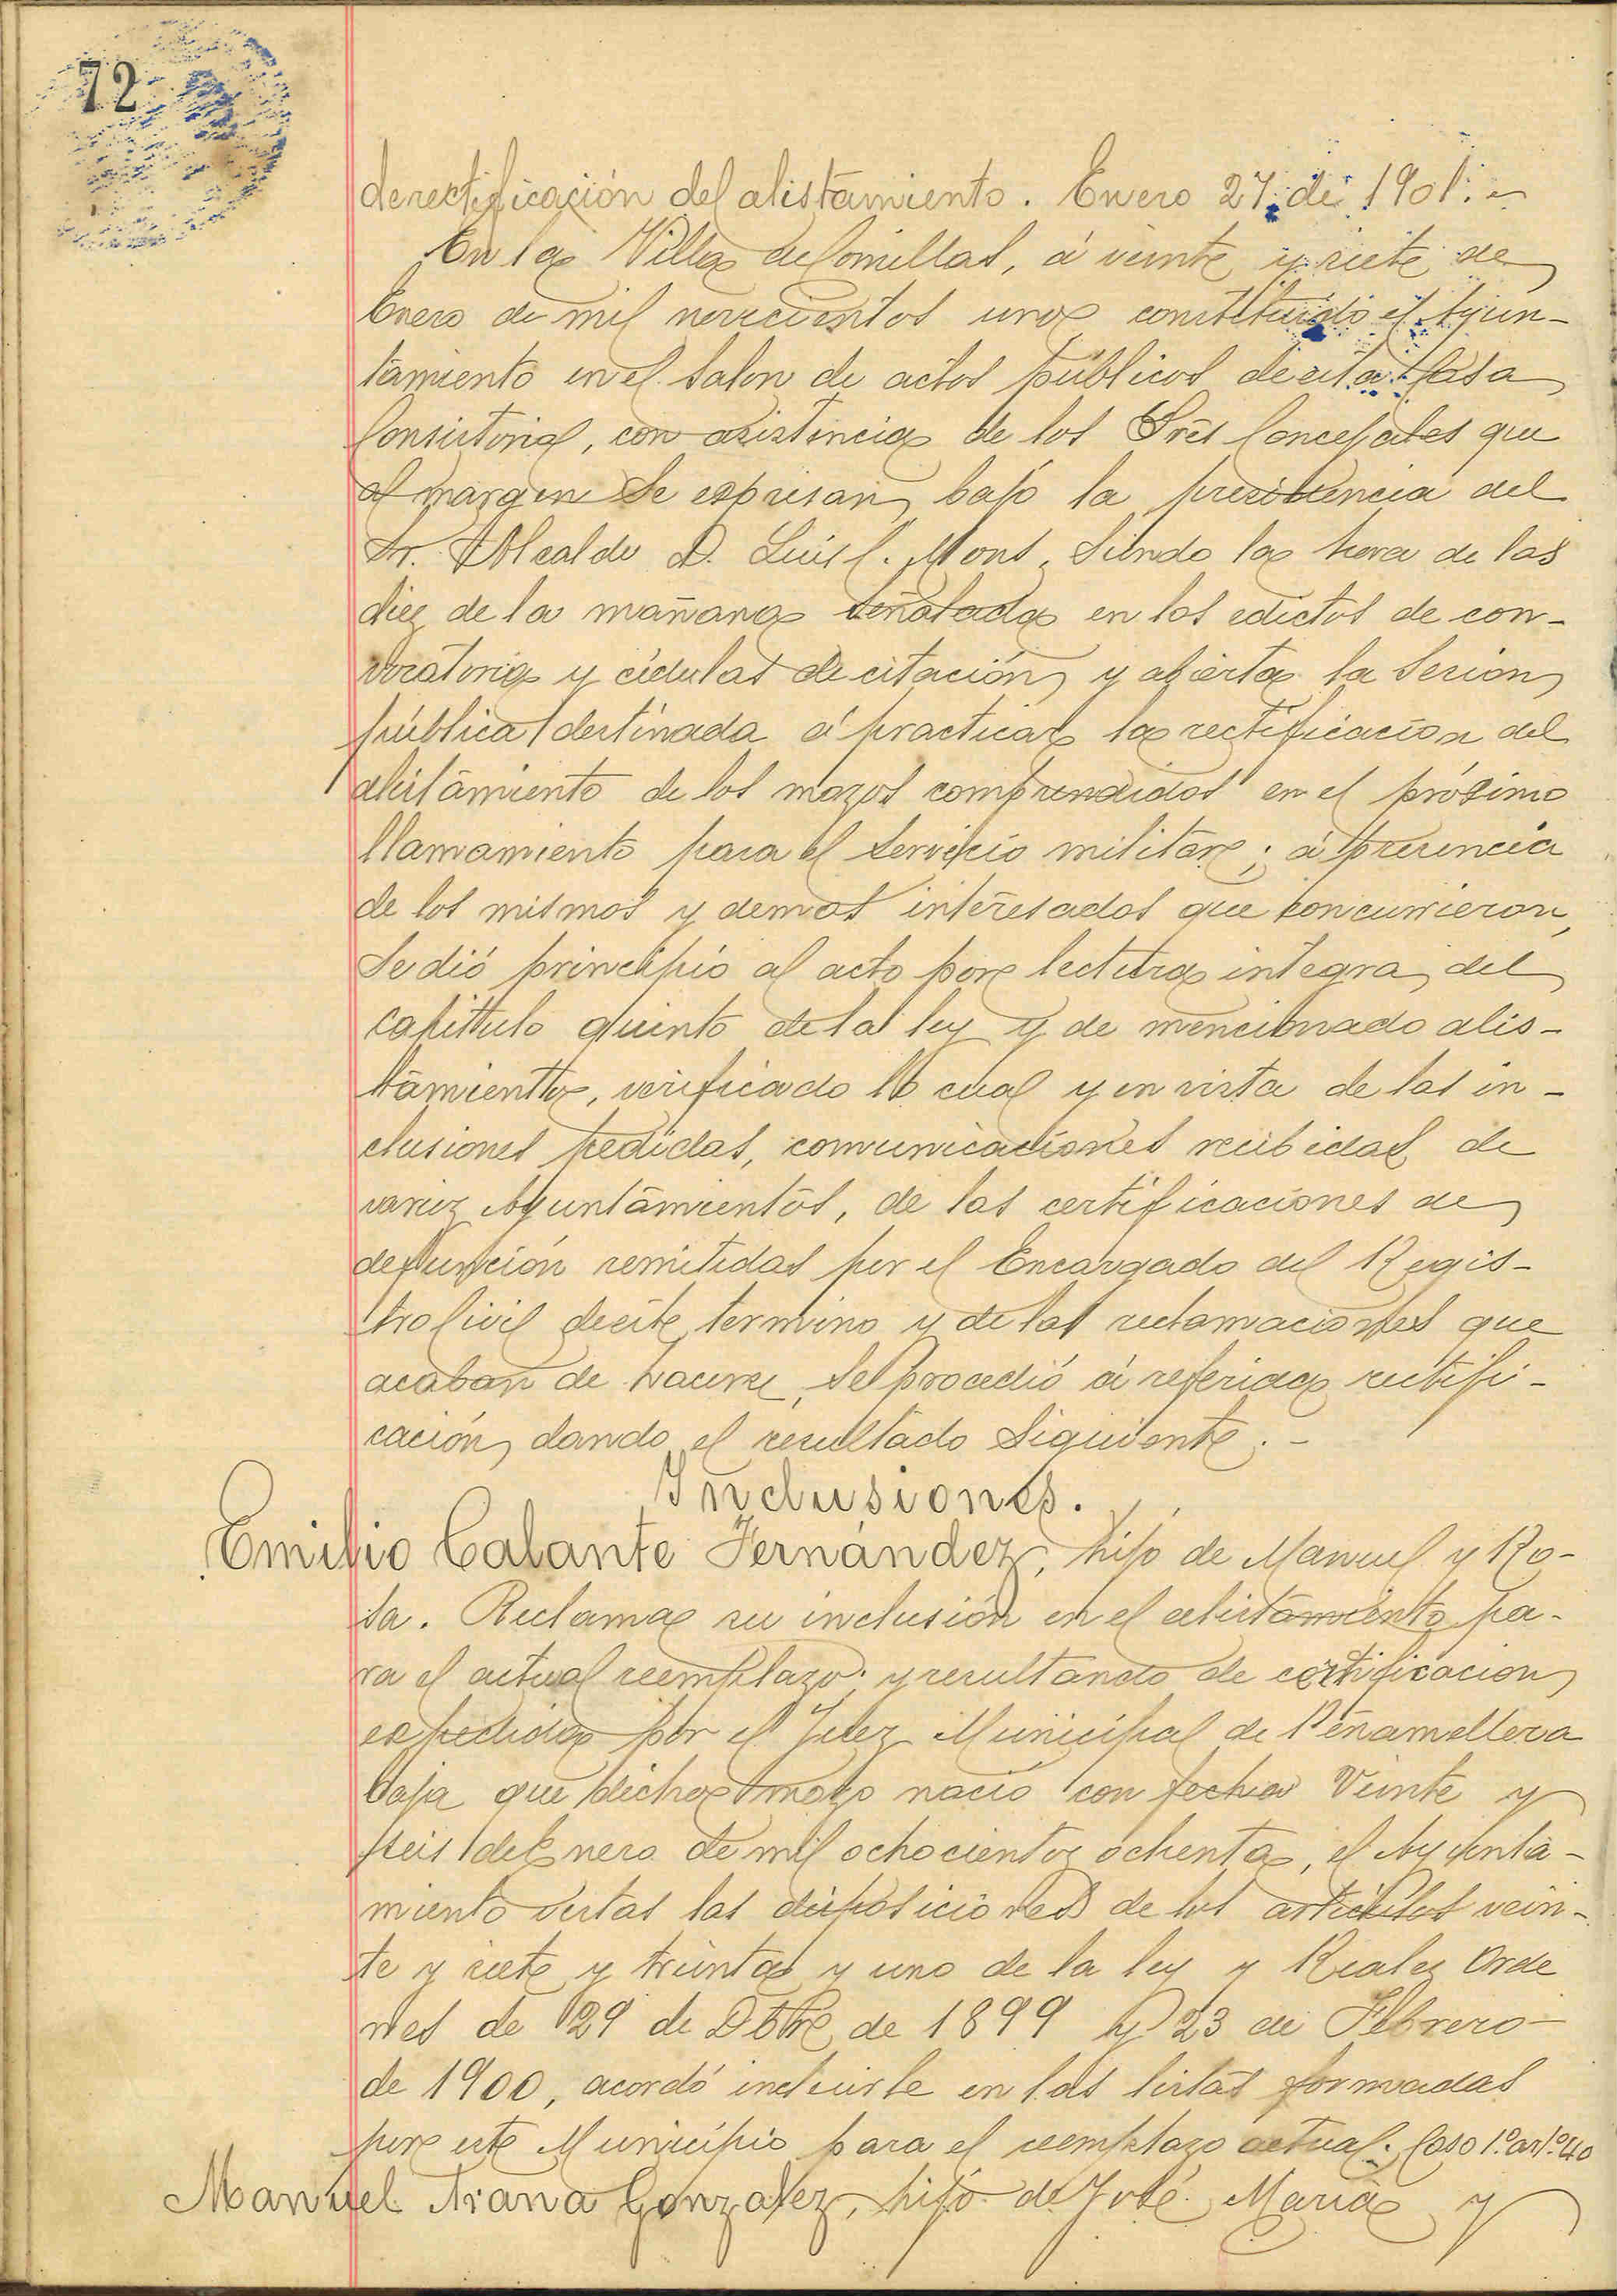 72
de rectificación del alistamiento. Enero 27 de 1901.-
En la Villa de Comillas, á veinte y siete de
Enero de mil novecientos uno constituido el Ayun-
tamiento en el Salon de actos públicos de esta Casa
Consistorial, con asistencia de los Sres Concejales que
al margen se espresan, bajo la presidencia del
Sr. Alcalde D. Luis C. Mons, siendo la hora de las
diez de la mañana señalada en los edictos de con-
vocatoria y cédulas de citación, y abierta la Sesion
pública destinada á practicar la rectificación del
alistamiento de los mozos comprendidos en el próximo
llamamiento para el servicio militar; á presencia
de los mismos y demas interesados que concurrieron,
Se dió principio al acto por lectura integra del
Capitulo quinto de la ley y de mencionado alis-
tamiento, verificado lo cual y en vista de las in-
clusiones pedidas, comunicaciones recibidas de
varios Ayuntamientos, de las certificaciones de
defunción remitidas por el Encargado del Regis-
tro Civil de este termino y de las reclamaciones que
acaban de hacerse, Se procedió á referida rectifi-
cación, dando el resultado siguiente.-
Inclusiones.
Emilio Calante Fernández, hijo de Manuel y Ro-
sa. Reclama su inclusión en el alistamiento pa-
ra el actual reemplazo; y resultando de certificacion
espedida por el Juez Municipal de Peñamellera
baja que dicho mozo nació con fecha Veinte y
seis de Enero de mil ochocientos ochenta, el Ayunta-
miento vistas las disposiciones de los artículos vein-
te y siete y treinta y uno de la ley y Reales Orde
nes de 29 de Dbre de 1899 y 23 de Febrero
de 1900, acordó incluirle en las listas formadas
por este Municipio para el reemplazo actual. Caso 1.º art.º 40
Manuel Arana Gonzalez, hijo de José Maria y